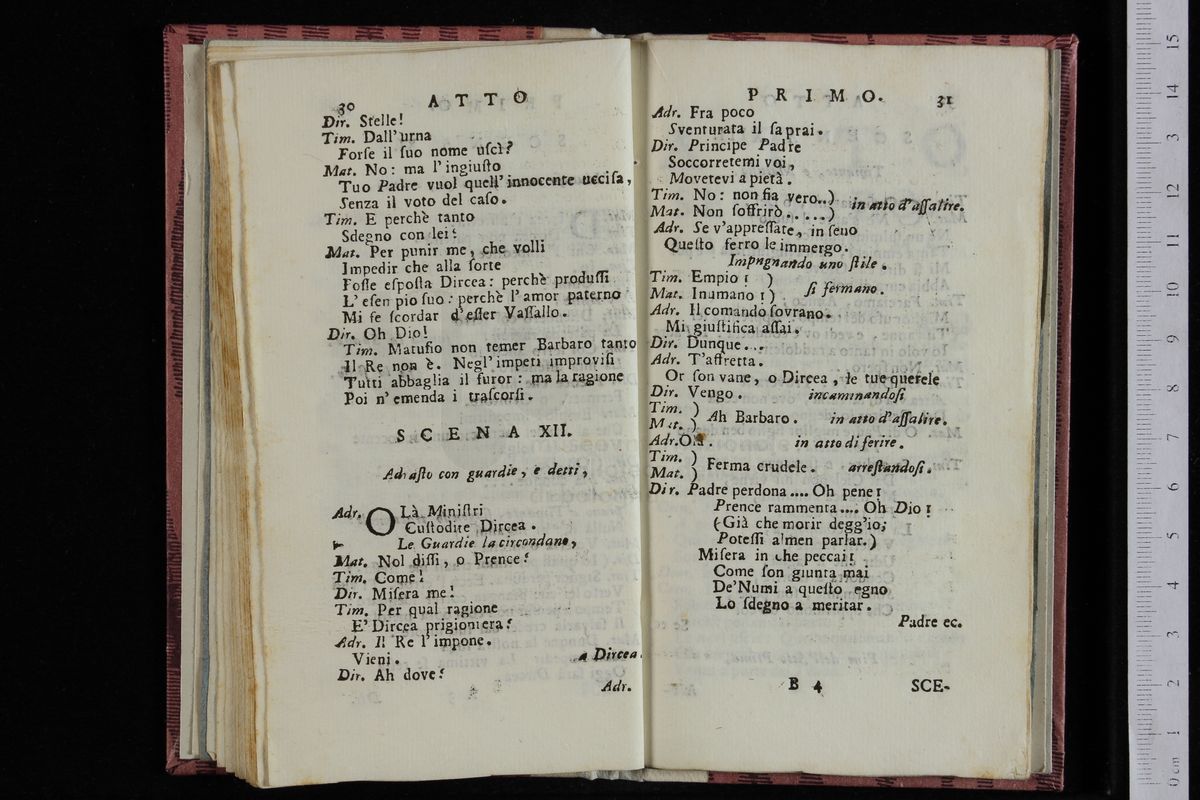 30
ATTO
Dir. Stelle!
Tim. Dall'urna
Forſe il ſuo nome uſcì?
Mat. No: ma l'ingiuſto
Tuo Padre vuol quell'innocente ucciſa,
Senza il voto del caſo.
Tim. E perchè tanto
Sdegno con lei?
Mat. Per punir me, che volli
Impedir che alla ſorte
Foſſe eſpoſta Dircea: perchè produſſi
L'eſen pio ſuo: perchè l'amor paterno
Mi fe ſcordar d'eſſer Vaſſallo.
Dir. Oh Dio!
Tim. Matuſio non temer Barbaro tanto
Il Re non è. Negl'impeti improviſi
Tutti abbaglia il furor: ma la ragione
Poi n'emenda i traſcorſi.
SCENA XII.
Adraſto con guardie, e detti,
Adr. OLà Miniſtri
Cuſtodite Dircea.
Le Guardie la circondano,
Mat. Nol diſſi, o Prence?
Tim. Come!
Dir. Miſera me!
Tim. Per qual ragione
E' Dircea prigioniera?
Adr. Il Re l'impone.
Vieni. a Dircea.
Dir. Ah dove?
Adr.
PRIMO. 31
Adr. Fra poco
Sventurata il ſaprai.
Dir. Principe Padre
Soccorretemi voi,
Movetevi a pietà.
Tim. No: non fia vero..)
Mat. Non ſoffrirò......) in atto d'aſſalire.
Adr. Se v'appreſſate, in ſeno
Queſto ferro le immergo.
Impngnando uno ſtile.
Tim. Empio! )
Mat. Inumano!) ſi fermano.
Adr. Il comando ſovrano.
Mi giuſtifica aſſai.
Dir. Dunque...
Adr. T'affretta.
Or ſon vane, o Dircea, le tue querele
Dir. Vengo. incaminandoſi
Tim. )
Mat. ) Ah Barbaro. in atto d'aſſalire.
Adr. Olà. in atto di ferire.
Tim. )
Mat. ) Ferma crudele. arreſtandoſi.
Dir. Padre perdona.... Oh pene!
Prence rammenta.... Oh Dio!
(Già che morir degg'io;
Poteſſi almen parlar.)
Miſera in che peccai!
Come ſon giunta mai
De'Numi a queſto egno
Lo ſdegno a meritar.
Padre ec.
B 4 SCE-